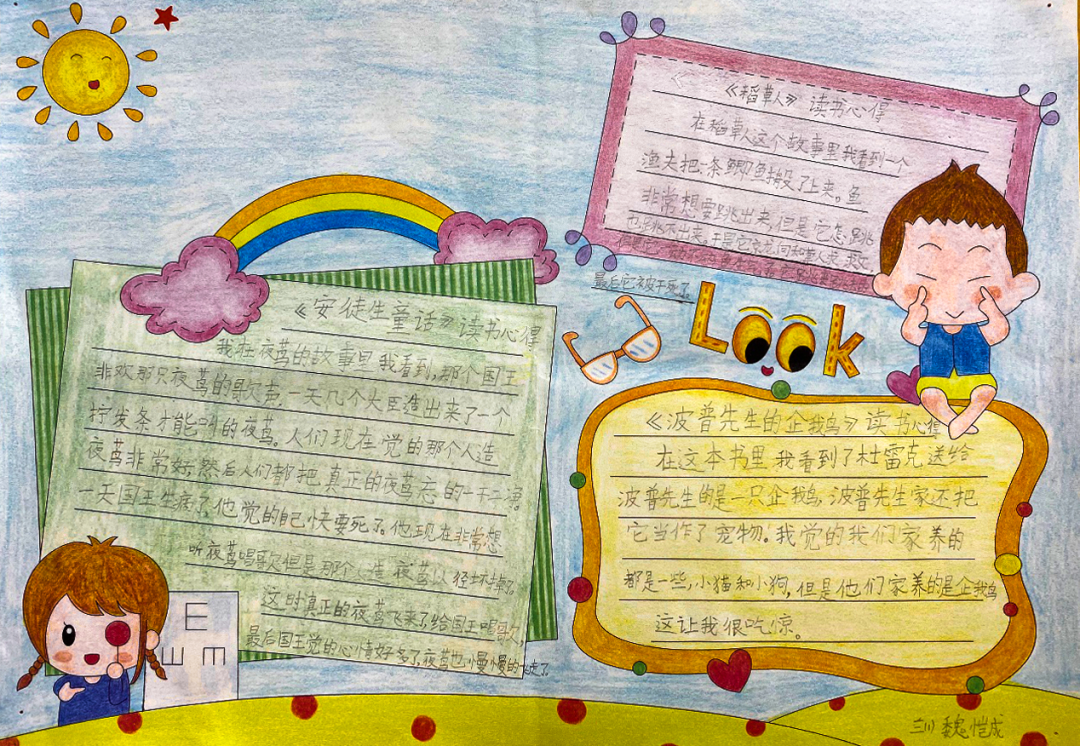 《稻草人》 读书心得
在稻草人这个故事里我看到一个
渔夫把一条鲫鱼搬了上来。鱼
非常想要跳出来,但是它怎跳
也跳不出来。于是它就
最后它被干死了。
Look
《安徒生童话》读书心得
我在夜莺的故事里我看到,那个国王
非欢那只夜莺的歌声,一天几个大臣造出来了一个
拧发条才能叫的夜莺。人们现在觉的那个人造
夜莺非常好,然后人们都把真正的夜莺忘的一干二净。
一天国王生病了,他觉的自己快要死了。他现在非常想
听夜莺唱歌但是那个人造夜莺以经坏掉了。
这时真正的夜莺飞来了,给国王唱歌
最后国王觉的心情好多了,夜莺也慢慢的飞走了。
《波普先生的企鹅》读书心得
在这本书里我看到了杜雷克送给
波普先生的是一只企鹅,波普先生家还把
它当作了宠物。我觉的我们家养的
都是一些,小猫和小狗,但是他们家养的是企鹅
这让我很吃惊。
E
Ш m
魏恺成